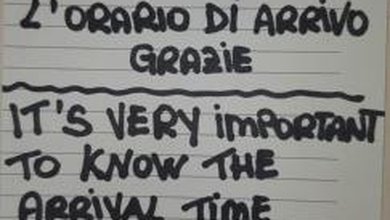 L'ORARIO DI ARRIVO
GRAZIE
IT'S VERY IMPORTANT
TO KNOW THE
ARRIVAL TIME